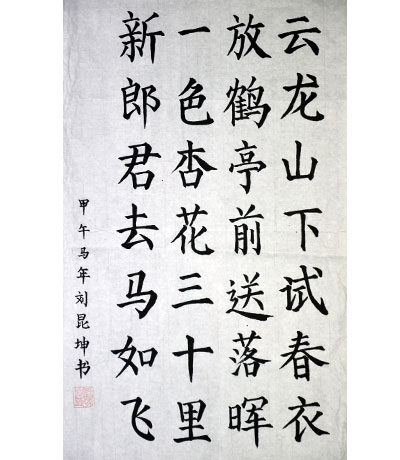 云龙山下试春衣
放鹤亭前送落晖
一色杏花三十里
新郎君去马如飞
甲午马年刘昆坤书